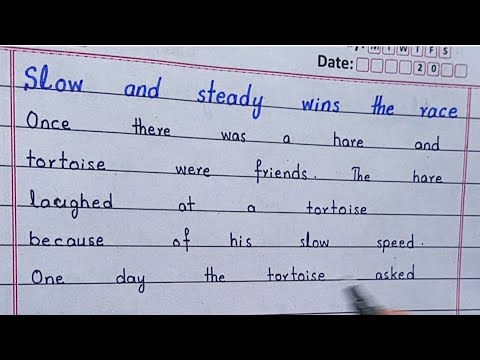 M T W T F S
Date: 2 0
Slow and steady wins the race
Once there was a hare and
tortoise were friends. The hare
laughed at a tortoise
because of his slow speed.
One day the tortoise asked